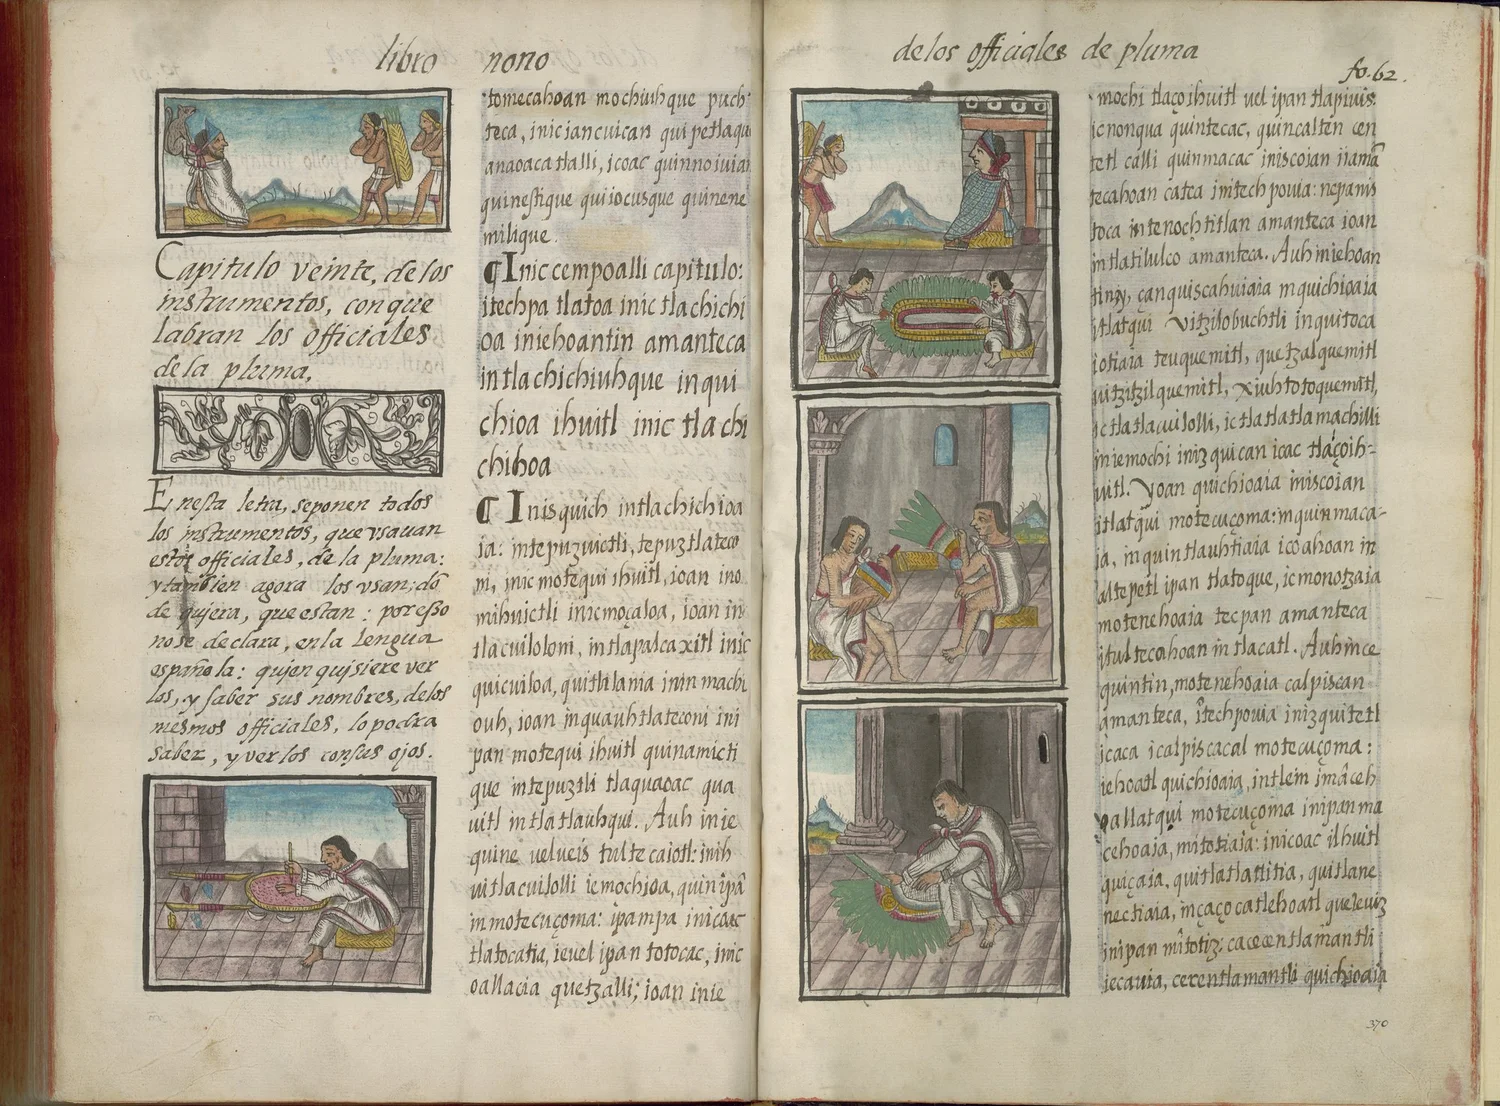 libro nono
Capitulo veinte, de los
instrumentos, con que
labran los officiales
de la pluma.
En esta letra, se ponen todos
los instrumentos, que vsauan
estos officiales, de la pluma:
y tambien agora los vsan; dõ
de qujera, que estan: por esso
no se declara, en la lengua
española: qujen qujsiere ver
los, y saber sus nombres, de los
mesmos officiales, lo podra
saber, y verlos con sus ojos.
tomecahoan mochiuhque puch
teca, inic iancuican quipetlaque
anaoaca tlalli, icoac quinnoiuian
quinestique quiiocusque quinene
milique.
¶ Inic cempoalli capitulo:
itechpa tlatoa inic tlachichi
oa iniehoantin amanteca
intlachichiuhque inqui
chioa ihuitl inic tlachi
chihoa
¶ Inisquich intlachichioa
ia: intepuzuictli, tepuztlateco
ni, inic motequi ihuitl, ioan ino
mihuictli inic moçaloa, ioan in
tlacuiloloni, intlapalcaxitl inic
quicuiloa, quitlilania inin machi
ouh, ioan inquauhtlateconi ini
pan motequi ihuitl quinamicti
que intepuztli tlaquaoac qua
uitl intlatlauhqui. Auh inie
quine uelueis tultecaiotl: inih
uitlacuilolli iemochioa, quin ipã
in motecuçoma: ipampa inicoac
tlatocatia, ieuel ipan totocac, inic
oallacia quetzalli; ioan inie
de los officiales de pluma
fo. 62.
mochi tlaçoihuitl uel ipan tlapiuis:
ic nonqua quintecac, quincalten cen
tetl calli quinmacac iniscoian iiamã
tecahoan catca initech pouia: nepanis
toca intenochtitlan amanteca ioan
intlatilulco amanteca. Auh iniehoan
tinẏ, çan quiscahuiaia inquichioaia
itlatqui Vitzilobuchtli inquitoca
iotiaia teuquemitl, quetzalquemitl
uitzitzilquemitl, Xiuhtotoquemitl,
ic tlatlacuilolli, ic tlatlatlamachilli
iniemochi inizquican icac tlaçoih-
uitl. Yoan quichioaia iniscoian
itlatqui motecuçoma: inquinmaca-
ia, inquintlauhtiaia icoahoan in
altepetl ipan tlatoque, ic monotzaia
motenehoaia tecpan amanteca
itultecahoan in tlacatl. Auh ince
quintin, motenehoaia calpiscan
amanteca, itechpouia inizquitetl
icaca icalpiscacal motecuçoma:
iehoatl quichioaia, intlein imãceh
uallatqui motecuçoma inipan ma
cehoaia, mitotiaia: inicoac ilhuitl
quiçaia, quitlatlattitia, quitlane
nectiaia, inçaço catlehoatl queleuiz
inipan mitotiz: ca cecentlamantli
iecauia, cecentlamantli quichioaia
370